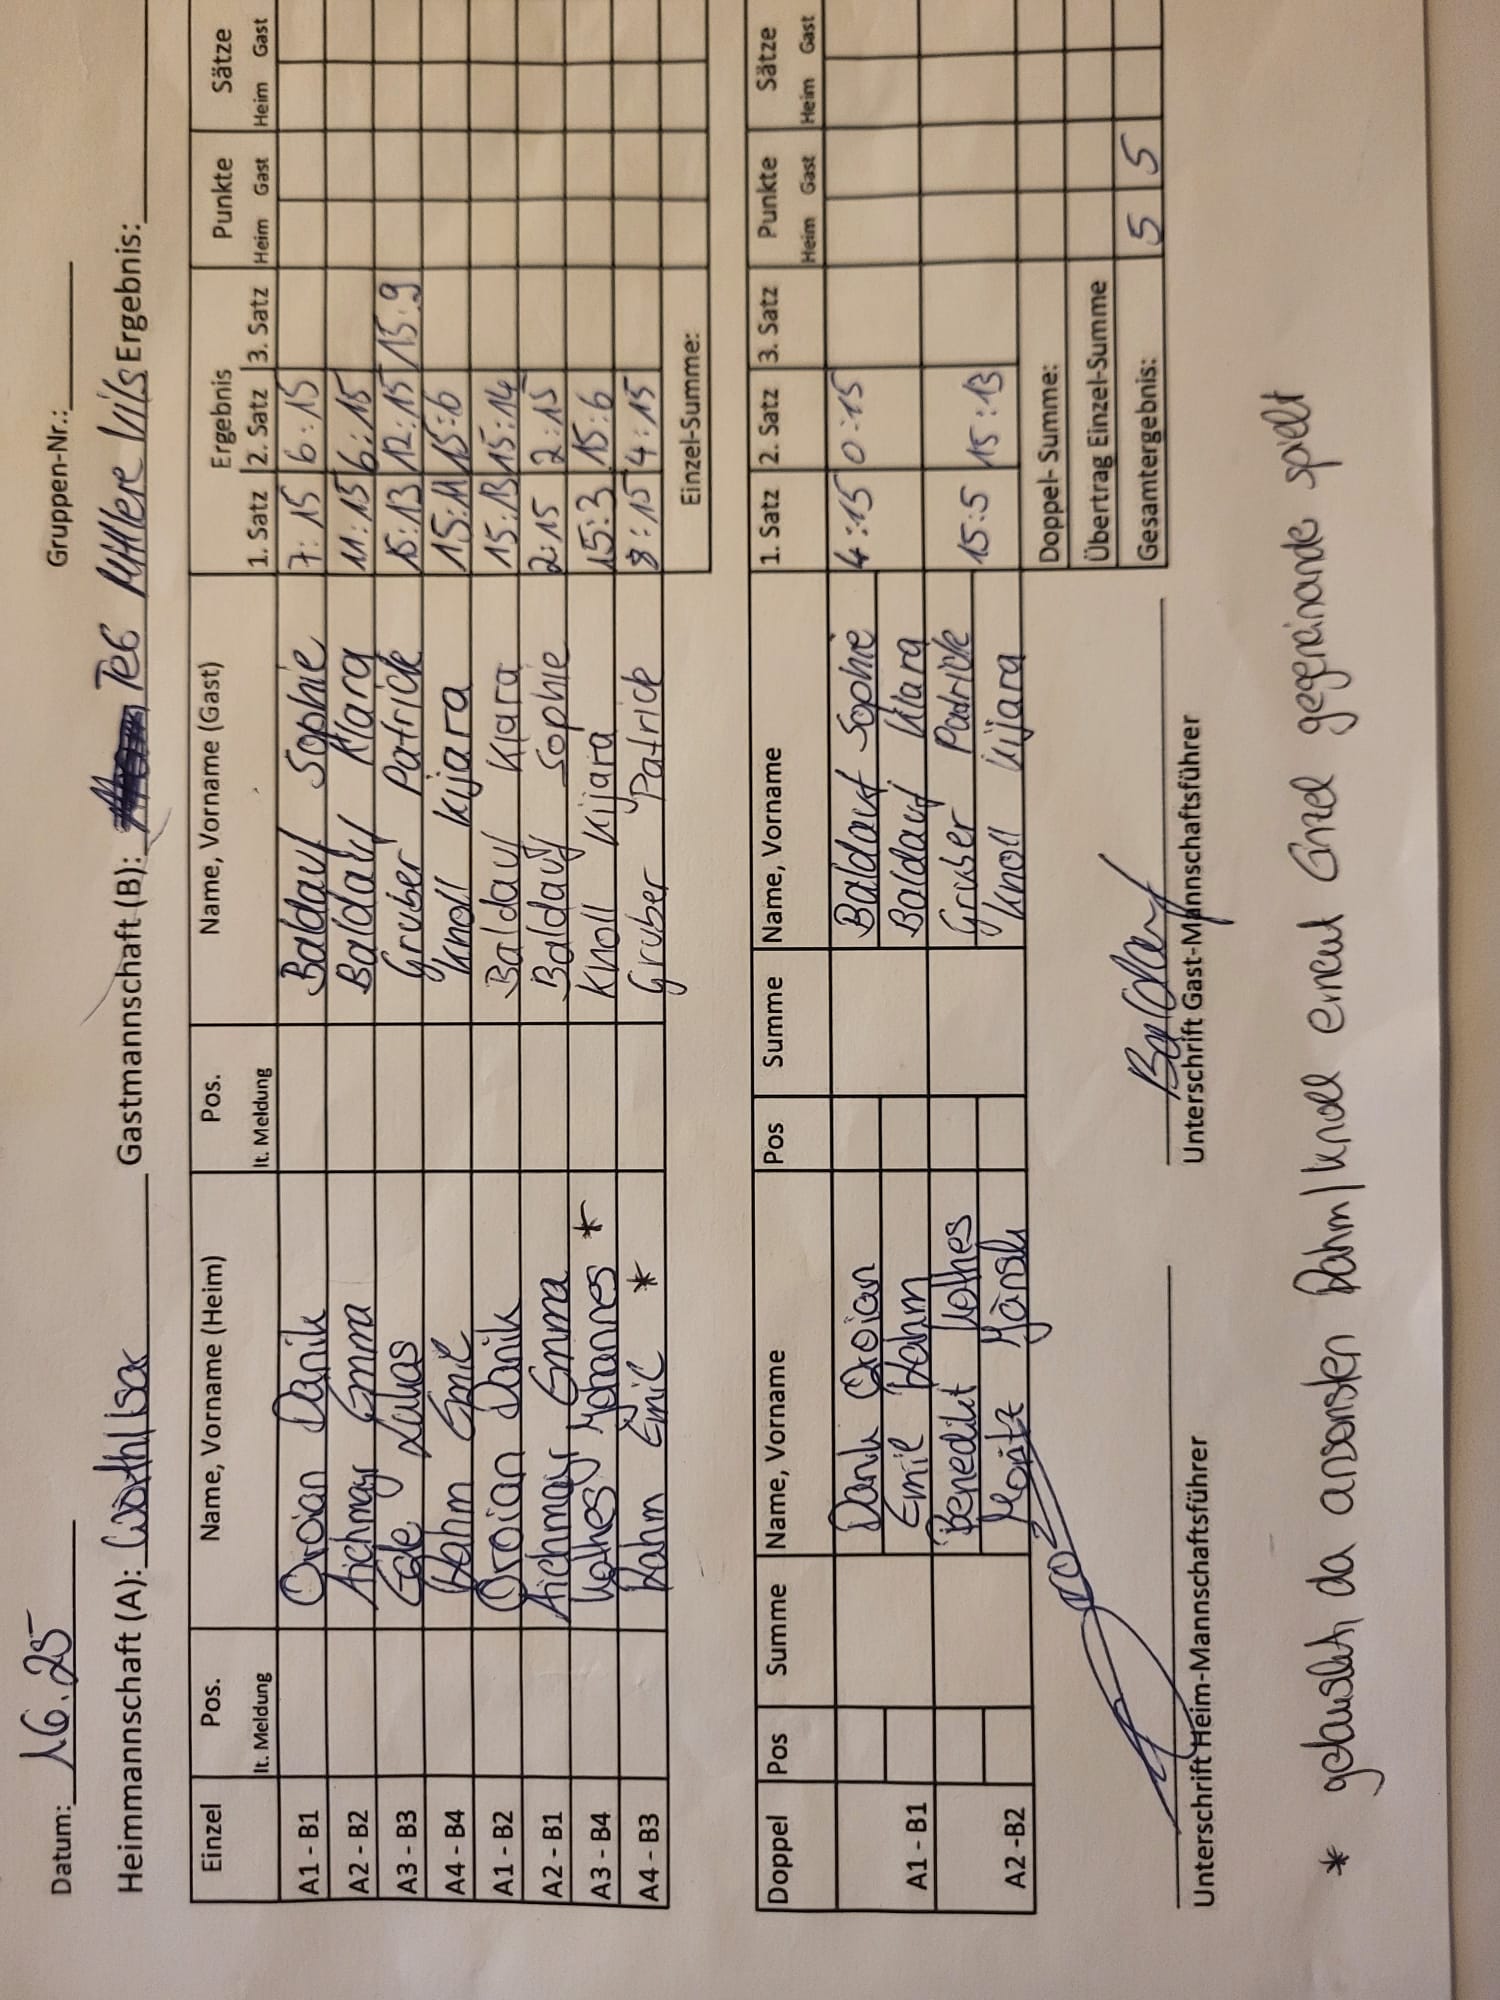 Datum: 1.6.25 Gruppen-Nr.:
Heimmannschaft (A): Wörth/Isar Gastmannschaft (B): TeG Mittlere Vils Ergebnis:
Einzel Pos. lt. Meldung Name, Vorname (Heim) Pos. lt. Meldung Name, Vorname (Gast) Ergebnis 1. Satz 2. Satz 3. Satz Punkte Heim Gast Sätze Heim Gast
A1 - B1 Oroian Danik Baldauf Sophie 7:15 6:15
A2 - B2 Aichmayr Emma Baldauf Klara 11:15 6:15
A3 - B3 Ede Lukas Gruber Patrick 15:13 12:15 15:9
A4 - B4 Dahm Emil Knoll Kijara 15:11 15:6
A1 - B2 Oroian Danik Baldauf Klara 15:13 15:14
A2 - B1 Aichmayr Emma Baldauf Sophie 2:15 2:15
A3 - B4 Kothes Johannes * Knoll Kijara 15:3 15:6
A4 - B3 Dahm Emil * Gruber Patrick 8:15 4:15
Einzel-Summe:
Doppel Pos Summe Name, Vorname Pos Summe Name, Vorname 1. Satz 2. Satz 3. Satz Punkte Heim Gast Sätze Heim Gast
Danik Oroian Baldauf Sophie 4:15 0:15
A1 - B1 Emil Dahm Baldauf Klara
Benedikt Kothes Gruber Patrick 15:5 15:13
A2 - B2 Moritz Knoll Kijara
Doppel- Summe:
Übertrag Einzel-Summe
Gesamtergebnis: 5 5
Baldauf
Unterschrift Heim-Mannschaftsführer Unterschrift Gast-Mannschaftsführer
* getauscht, da ansonsten Dahm/Knoll erneut Einzel gegeneinande spielt